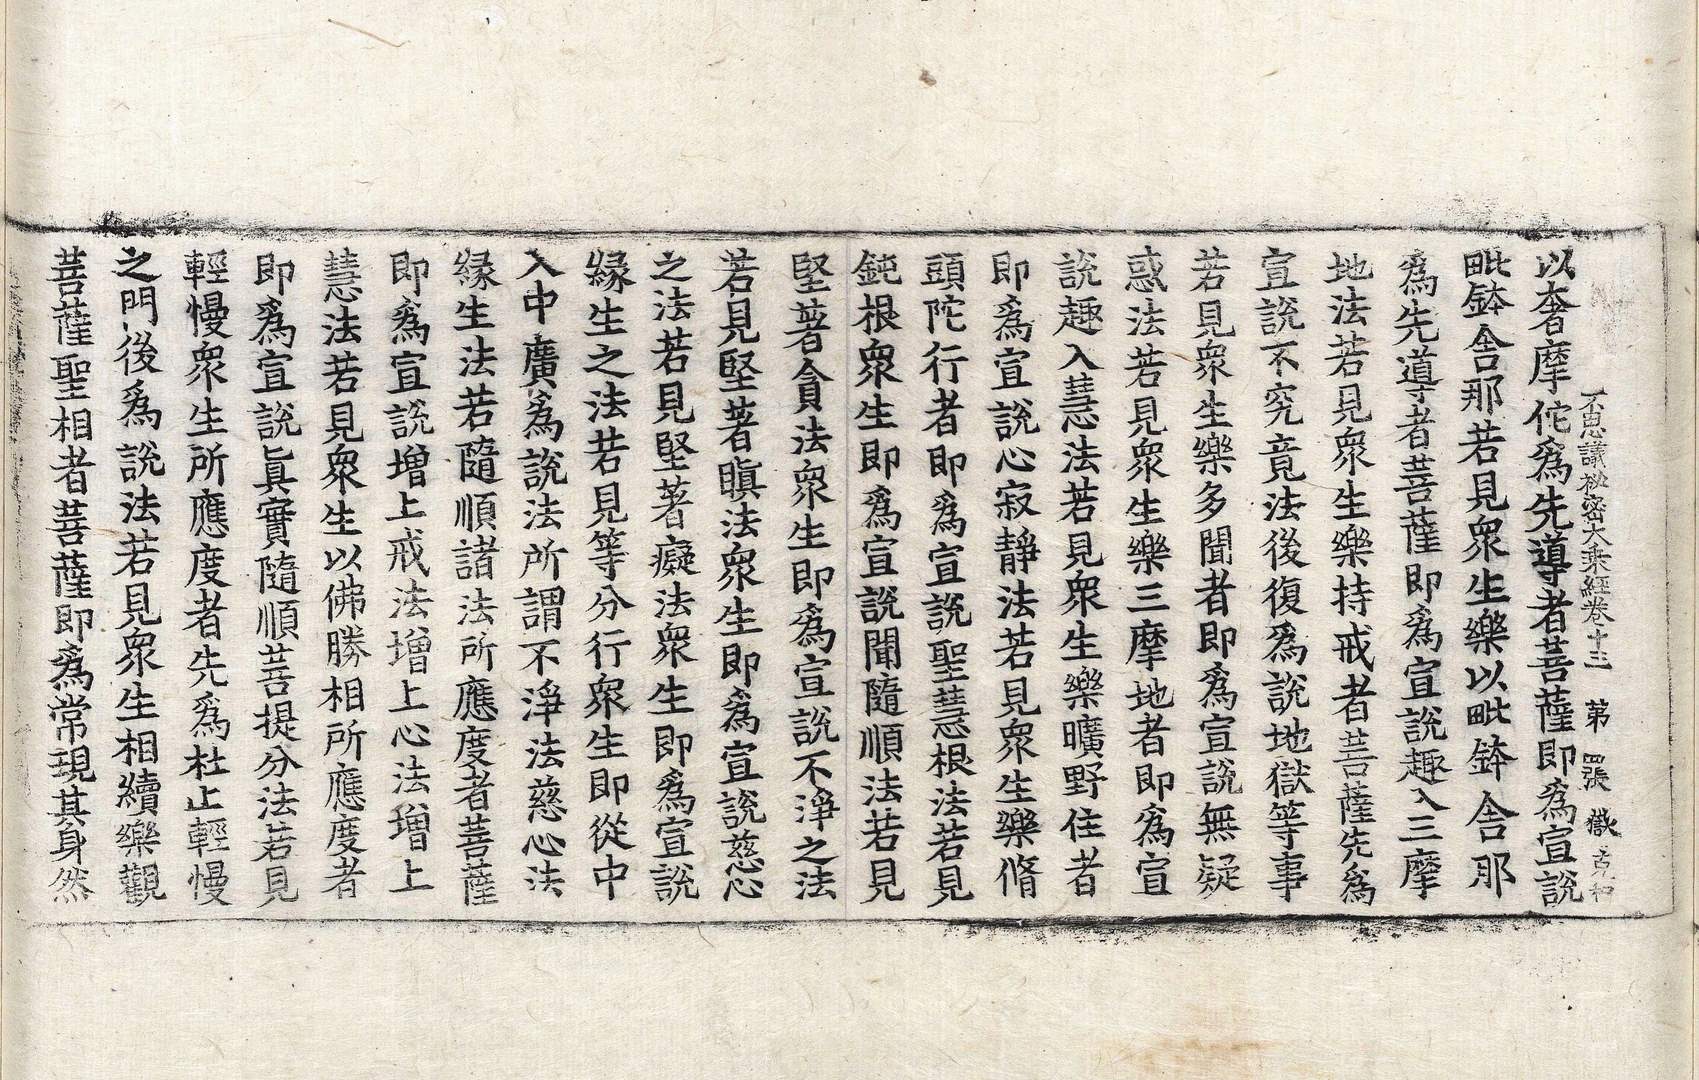 不思議秘密大乘經卷十三　第四張　嶽　克和
以奢摩佗爲先導者菩薩即爲宣說
毗鉢舍那若見衆生樂以毗鉢舍那
爲先導者菩薩即爲宣說趣入三摩
地法若見衆生樂持戒者菩薩先爲
宣說不究竟法後復爲說地獄等事
若見衆生樂多聞者即爲宣說無疑
惑法若見衆生樂三摩地者即爲宣
說趣入慧法若見衆生樂曠野住者
即爲宣說心寂靜法若見衆生樂脩
頭陀行者即爲宣說聖慧根法若見
鈍根衆生即爲宣說聞隨順法若見
堅著貪法衆生即爲宣說不淨之法
若見堅著瞋法衆生即爲宣說慈心
之法若見堅著癡法衆生即爲宣說
緣生之法若見等分行衆生即從中
入中廣爲說法所謂不淨法慈心法
緣生法若隨順諸法所應度者菩薩
即爲宣說增上戒法增上心法增上
慧法若見衆生以佛勝相所應度者
即爲宣說眞實隨順菩提分法若見
輕慢衆生所應度者先爲杜止輕慢
之門後爲說法若見衆生相續樂觀
菩薩聖相者菩薩即爲常現其身然